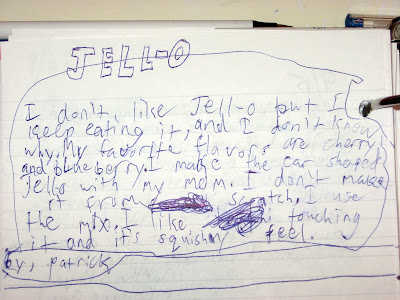 JELL-O
I don't, like Jell-o but I
keep eating it, and I don't know
why. My favorite flavors are cherry
and blueberry. I make the car shaped
Jello with my mom. I don't make
it frum scratch, I use
the mix. I like touching
it and it's squishy feel.
by, patrick